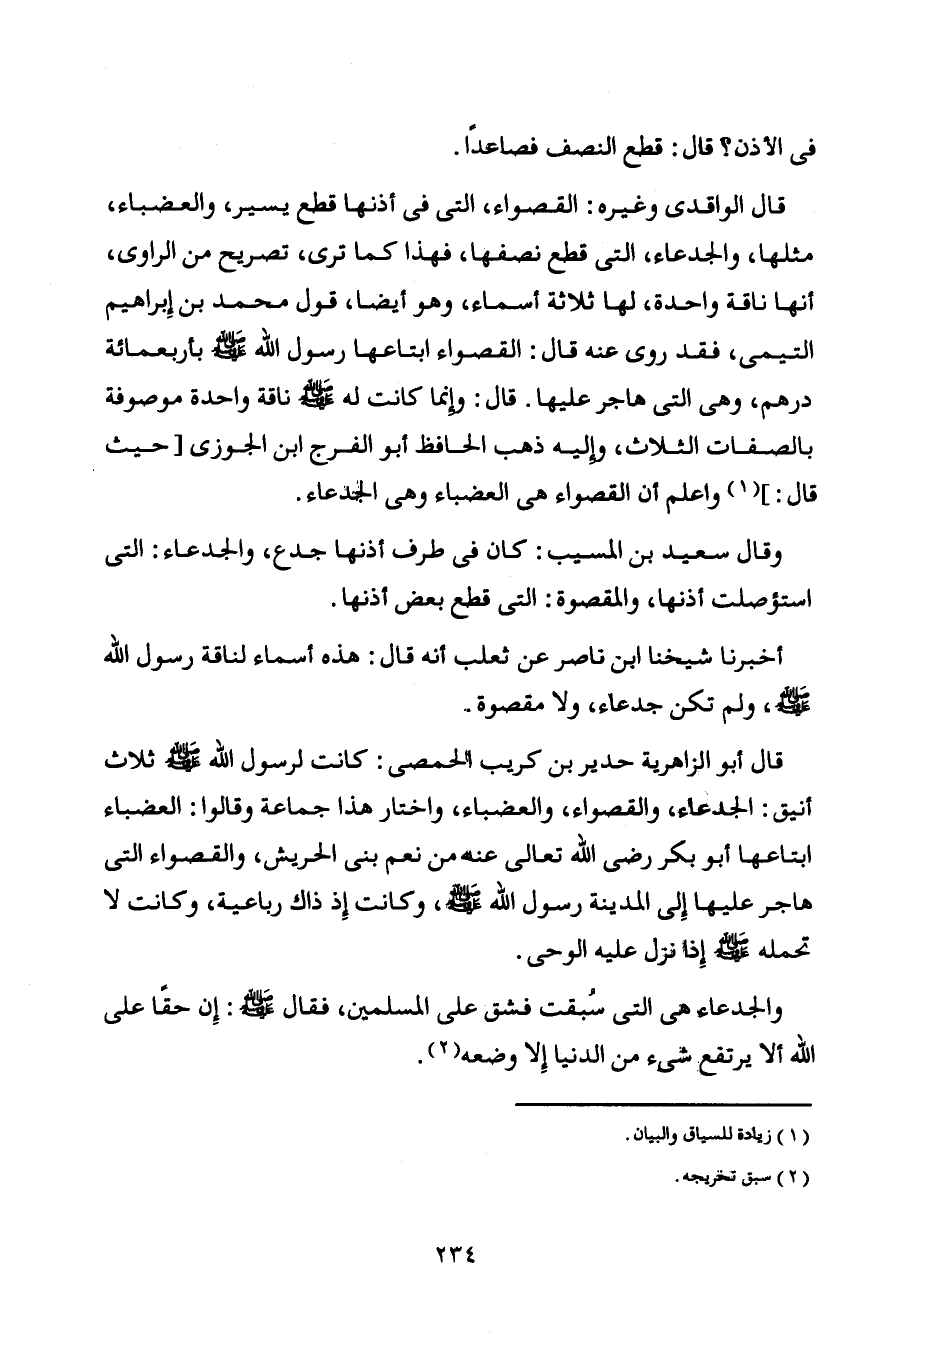 فى الأذن؟ قال: قطع النصف فصاعدًا.
قال الواقدى وغيره: القصواء، التى فى أذنها قطع يسير، والعضباء،
مثلها، والجدعاء، التى قطع نصفها، فهذا كما ترى، تصريح من الراوى،
أنها ناقة واحدة، لها ثلاثة أسماء، وهو أيضا، قول محمد بن إبراهيم
التيمى، فقد روى عنه قال: القصواء ابتاعها رسول الله ﷺ بأربعمائة
درهم، وهى التى هاجر عليها. قال: وإنما كانت له ﷺ ناقة واحدة موصوفة
بالصفات الثلاث، وإليه ذهب الحافظ أبو الفرج ابن الجوزى [حيث
قال:](١) واعلم أن القصواء هى العضباء وهى الجدعاء.
وقال سعيد بن المسيب: كان فى طرف أذنها جدع، والجدعاء: التى
استؤصلت أذنها، والمقصوة: التى قطع بعض أذنها.
أخبرنا شيخنا ابن ناصر عن ثعلب أنه قال: هذه أسماء لناقة رسول الله
ﷺ، ولم تكن جدعاء، ولا مقصوة.
قال أبو الزاهرية حدير بن كريب الحمصى: كانت لرسول الله ﷺ ثلاث
أنيق: الجدعاء، والقصواء، والعضباء، واختار هذا جماعة وقالوا: العضباء
ابتاعها أبو بكر رضى الله تعالى عنه من نعم بنى الحريش، والقصواء التى
هاجر عليها إلى المدينة رسول الله ﷺ، وكانت إذ ذاك رباعية، وكانت لا
تحمله ﷺ إذا نزل عليه الوحى.
والجدعاء هى التى سُبقت فشق على المسلمين، فقال ﷺ: إن حقًا على
الله ألا يرتفع شىء من الدنيا إلا وضعه(٢).
(١) زيادة للسياق والبيان.
(٢) سبق تخريجه.
٢٣٤